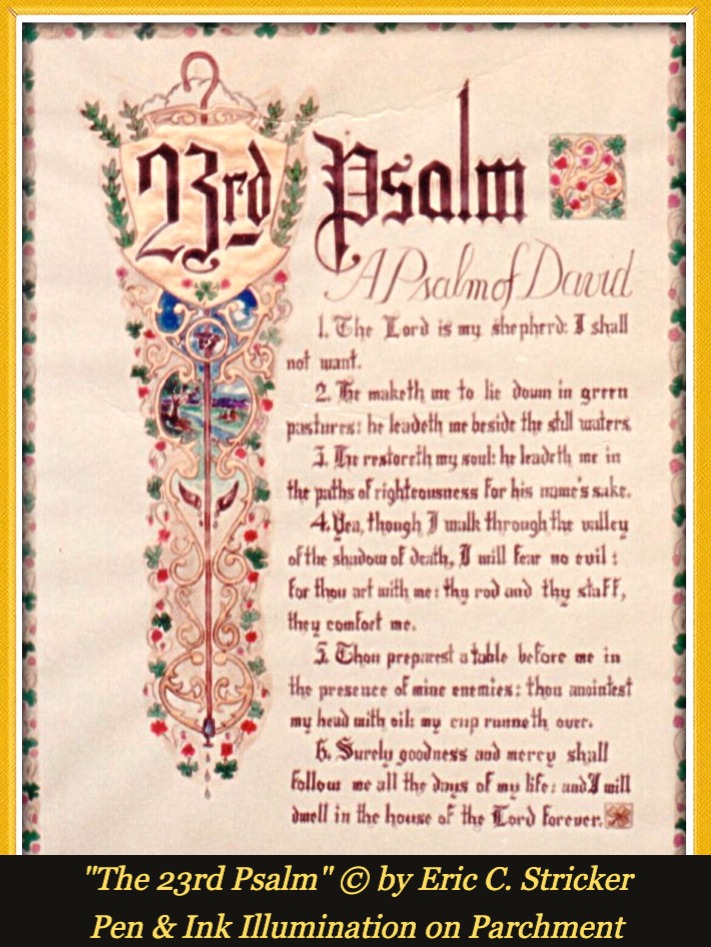 23rd Psalm
A Psalm of David
1. The Lord is my shepherd: I shall
not want.
2. He maketh me to lie down in green
pastures: he leadeth me beside the still waters.
3. He restoreth my soul: he leadeth me in
the paths of righteousness for his name's sake.
4. Yea, though I walk through the valley
of the shadow of death, I will fear no evil:
for thou art with me: thy rod and thy staff,
they comfort me.
5. Thou preparest a table before me in
the presence of mine enemies: thou anointest
my head with oil: my cup runneth over.
6. Surely goodness and mercy shall
follow me all the days of my life: and I will
dwell in the house of the Lord forever.
"The 23rd Psalm" © by Eric C. Stricker
Pen & Ink Illumination on Parchment